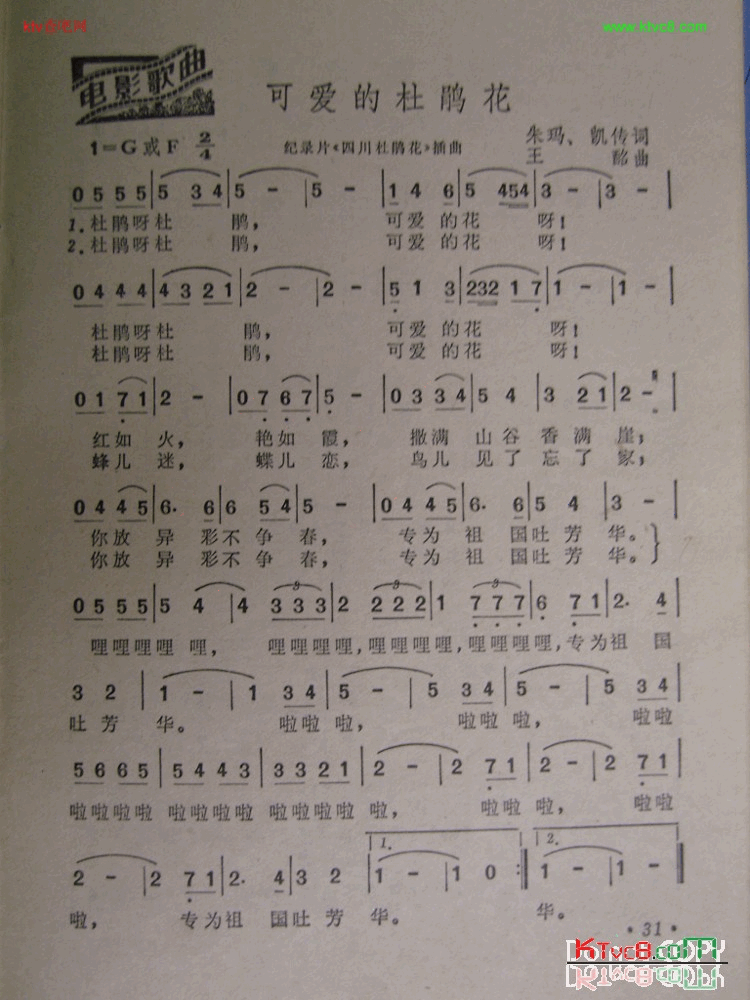 ktv歌谱网
www.ktvc8.com
电影歌曲
可爱的杜鹃花
1=G或F 2/4
纪录片《四川杜鹃花》插曲
朱玛、凯传词
王 酩曲
0 5 5 5 | 5 3 4 | 5 - | 5 - | 1 4 6 | 5 454 | 3 - | 3 - |
1.杜鹃呀杜 鹃, 可爱的花 呀!
2.杜鹃呀杜 鹃, 可爱的花 呀!
0 4 4 4 | 4 3 2 1 | 2 - | 2 - | 5 1 3 | 232 1 7 | 1 - | 1 - |
杜鹃呀杜 鹃, 可爱的花 呀!
杜鹃呀杜 鹃, 可爱的花 呀!
0 1 7 1 | 2 - | 0 7 6 7 | 5 - | 0 3 3 4 | 5 4 | 3 2 1 | 2 -
红如 火, 艳如 霞, 撒满 山谷香满崖;
蜂儿 迷, 蝶儿 恋, 鸟儿 见了忘了家,
0 4 4 5 | 6. 6 | 6 5 4 | 5 - | 0 4 4 5 | 6. 6 | 5 4 | 3 - |
你放 异 彩不争 春, 专为 祖 国吐芳 华。
你放 异 彩不争 春, 专为 祖 国吐芳 华。
0 5 5 5 | 5 4 | 4 3 3 3 | 2 2 2 2 | 1 7 7 7 | 6 7 1 | 2. 4 |
哩哩哩哩 哩, 哩哩哩哩,哩哩哩哩,哩哩哩哩,专为祖 国
3 2 | 1 - | 1 3 4 | 5 - | 5 3 4 | 5 - | 5 3 4 |
吐芳 华。 啦啦 啦, 啦啦 啦, 啦啦
5 6 6 5 | 5 4 4 3 | 3 3 2 1 | 2 - | 2 7 1 | 2 - | 2 7 1 |
啦啦啦啦 啦啦啦啦 啦啦啦啦 啦, 啦啦 啦, 啦啦
1. 2.
2 - | 2 7 1 | 2. 4 | 3 2 | 1 - | 1 0 :| 1 - | 1 - ‖
啦, 专为祖 国吐芳 华。 华。
·31·
KTvc8.com
DONG COPY